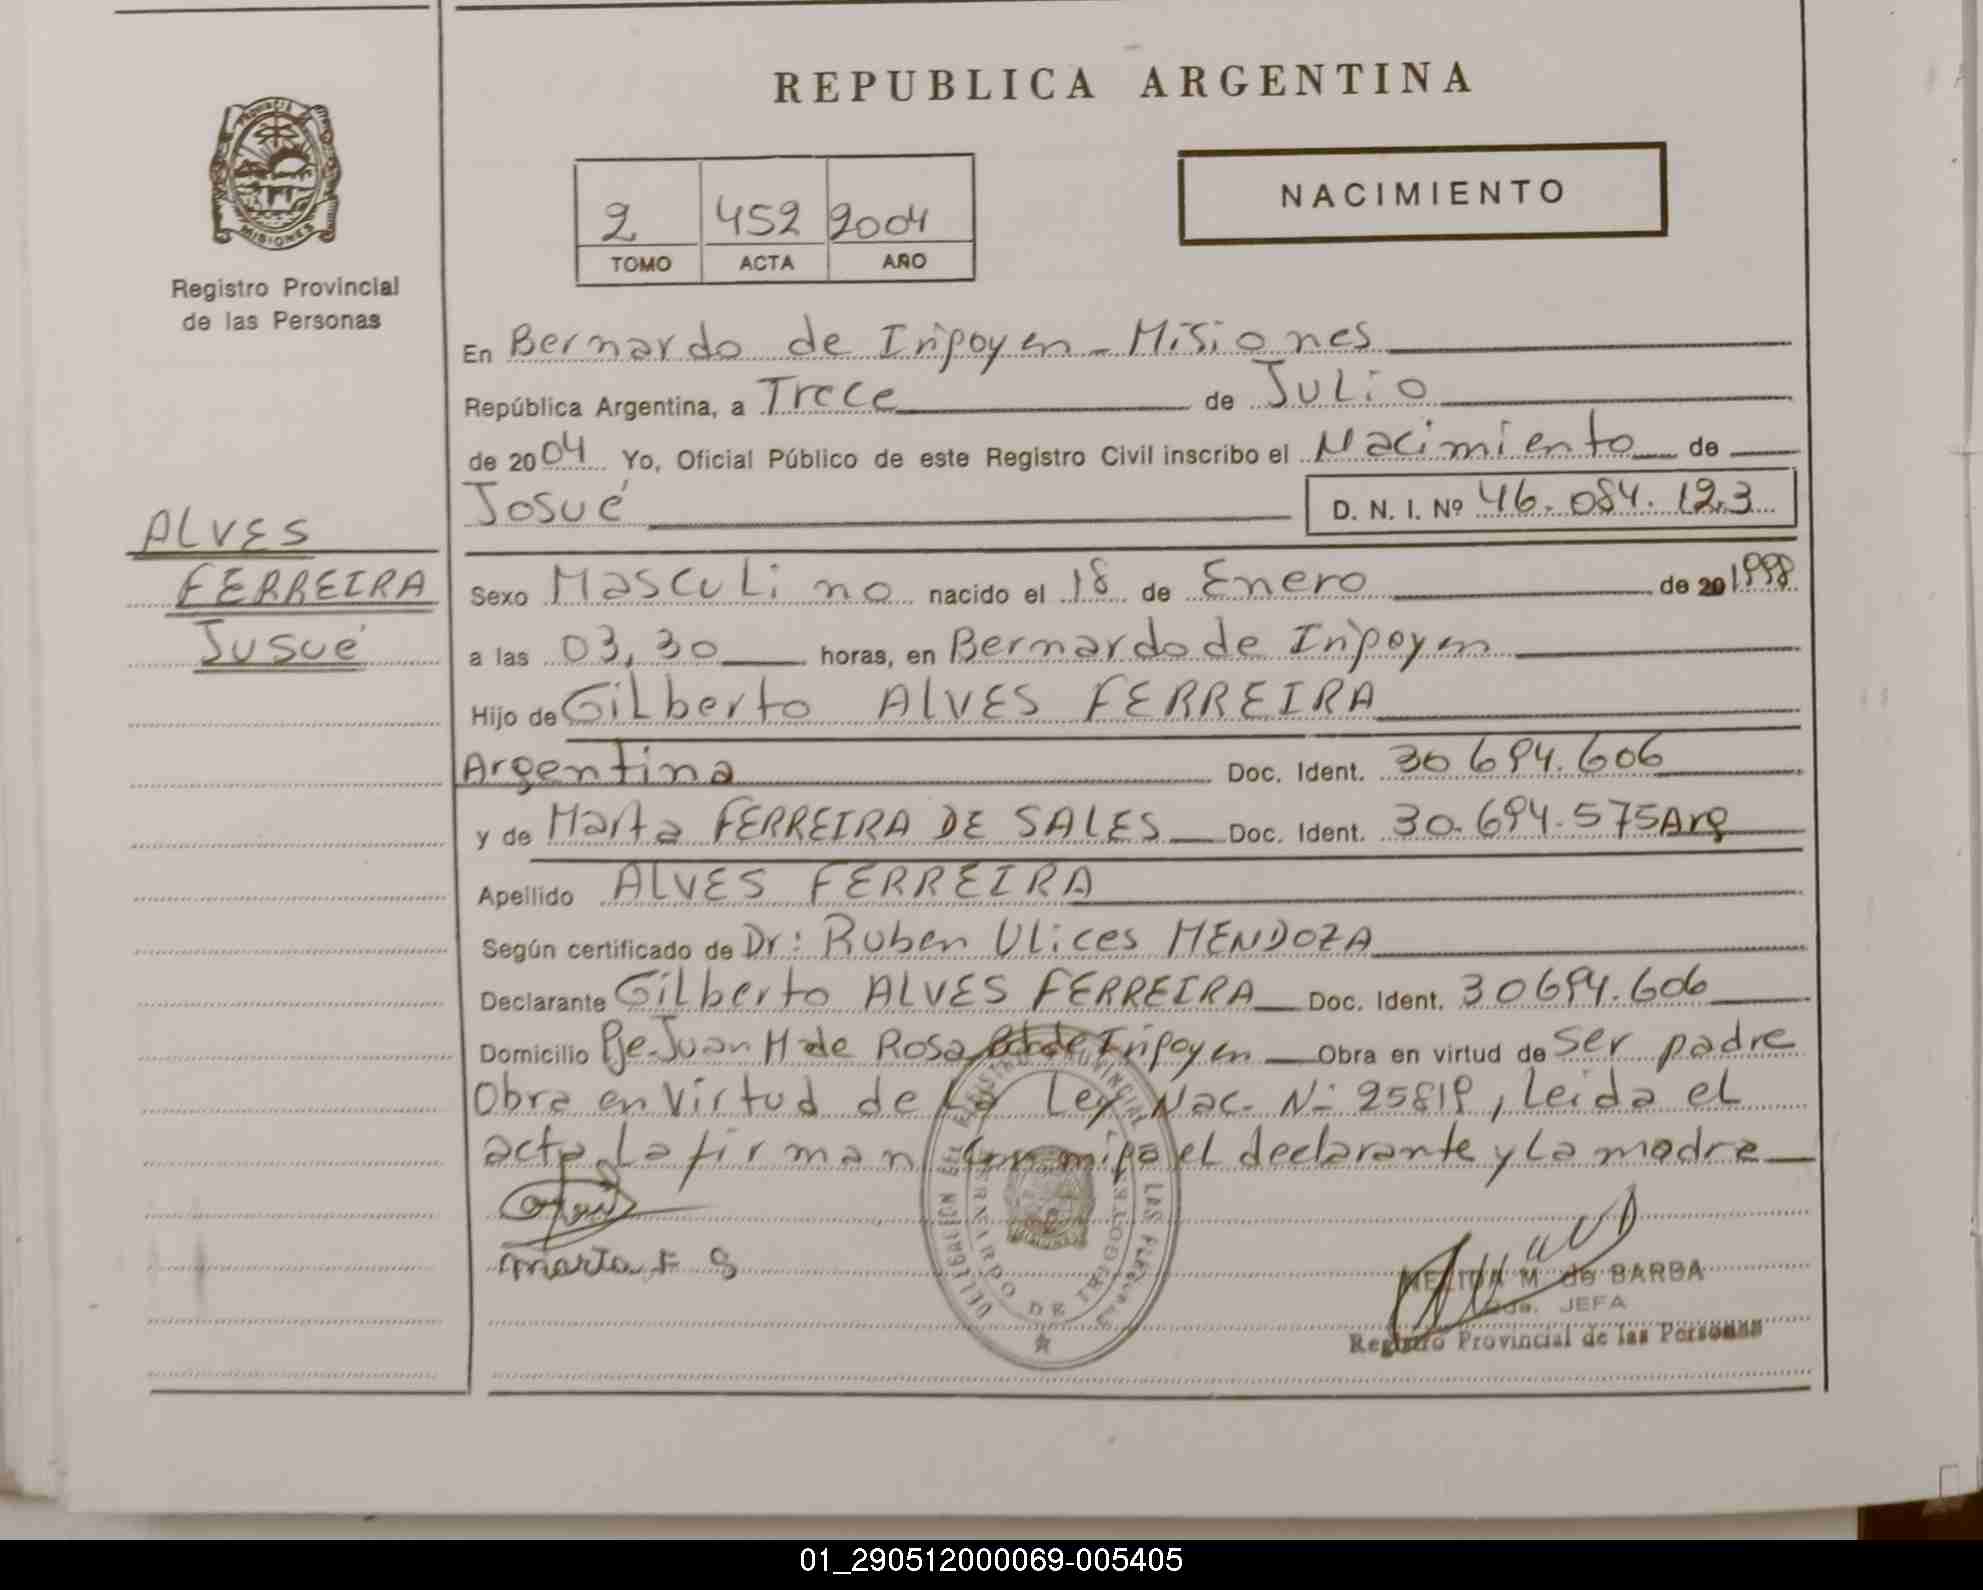 REPUBLICA ARGENTINA
PROVINCIA
MISIONES
Registro Provincial
de las Personas
NACIMIENTO
2 452 2004
TOMO ACTA AÑO
En Bernardo de Iripoyen - Misiones
República Argentina, a Trece de Julio
de 2004 Yo, Oficial Público de este Registro Civil inscribo el Nacimiento de
Josué D. N. I. Nº 46.084.123
ALVES
FERREIRA
Jusué
Sexo Masculino nacido el 18 de Enero de 20 1998
a las 03,30 horas, en Bernardo de Iripoyen
Hijo de Gilberto ALVES FERREIRA
Argentina Doc. Ident. 30 694.606
y de Marta FERREIRA DE SALES Doc. Ident. 30.694.575 Arg
Apellido ALVES FERREIRA
Según certificado de Dr: Ruben Ulices MENDOZA
Declarante Gilberto ALVES FERREIRA Doc. Ident. 30694.606
Domicilio Pje. Juan H de Rosa de Iripoyen Obra en virtud de ser padre
Obra en virtud de la Ley Nac. Nº 25819, Leida el
acta La firman el declarante y La madre
marta F S
DELEGACION DEL REGISTRO PROVINCIAL DE LAS PERSONAS
BERNARDO DE IRIGOYEN
MELIDA M. de BARBA
JEFA
Registro Provincial de las Personas
01_290512000069-005405